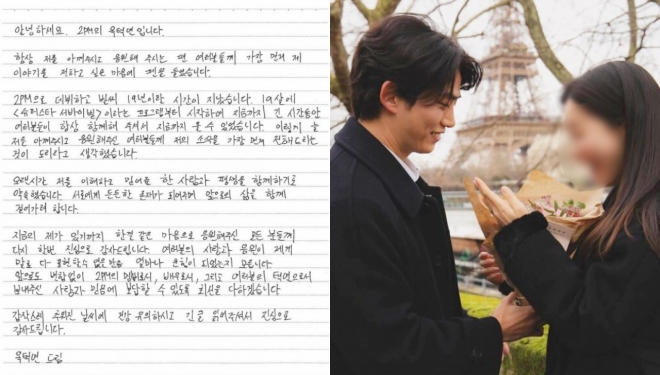 안녕하세요. 2PM의 옥택연입니다.
항상 저를 아껴주시고 응원해 주시는 팬 여러분들께 가장 먼저 제
이야기를 전하고 싶은 마음에 펜을 들었습니다.
2PM으로 데뷔하고 벌써 19년이란 시간이 지났습니다. 19살에
<슈퍼스타 서바이벌>이라는 프로그램부터 시작하여 지금까지 긴 시간동안
여러분들이 항상 함께해 주셔서 지금까지 올 수 있었습니다. 이렇게 늘
저를 아껴주시고 응원해주신 여러분들께 저의 소식을 가장 먼저 전해드리는
것이 도리라고 생각했습니다.
오랜시간 저를 이해하고 믿어준 한 사람과 평생을 함께하기로
약속했습니다. 서로에게 든든한 존재가 되어주며 앞으로의 삶을 함께
걸어가려 합니다.
지금의 제가 있기까지 한결 같은 마음으로 응원해주신 모든 분들께
다시 한번 진심으로 감사드립니다. 여러분의 사랑과 응원이 제게
말로 다 표현할 수 없을만큼 얼마나 큰힘이 되었는지 모릅니다
앞으로도 변함없이 2PM의 멤버로서, 배우로서, 그리고 여러분의 택연으로서
보내주신 사랑과 믿음에 보답할 수 있도록 최선을 다하겠습니다
갑작스레 추워진 날씨에 건강 유의하시고 긴 글 읽어주셔서 진심으로
감사드립니다.
옥택연 드림